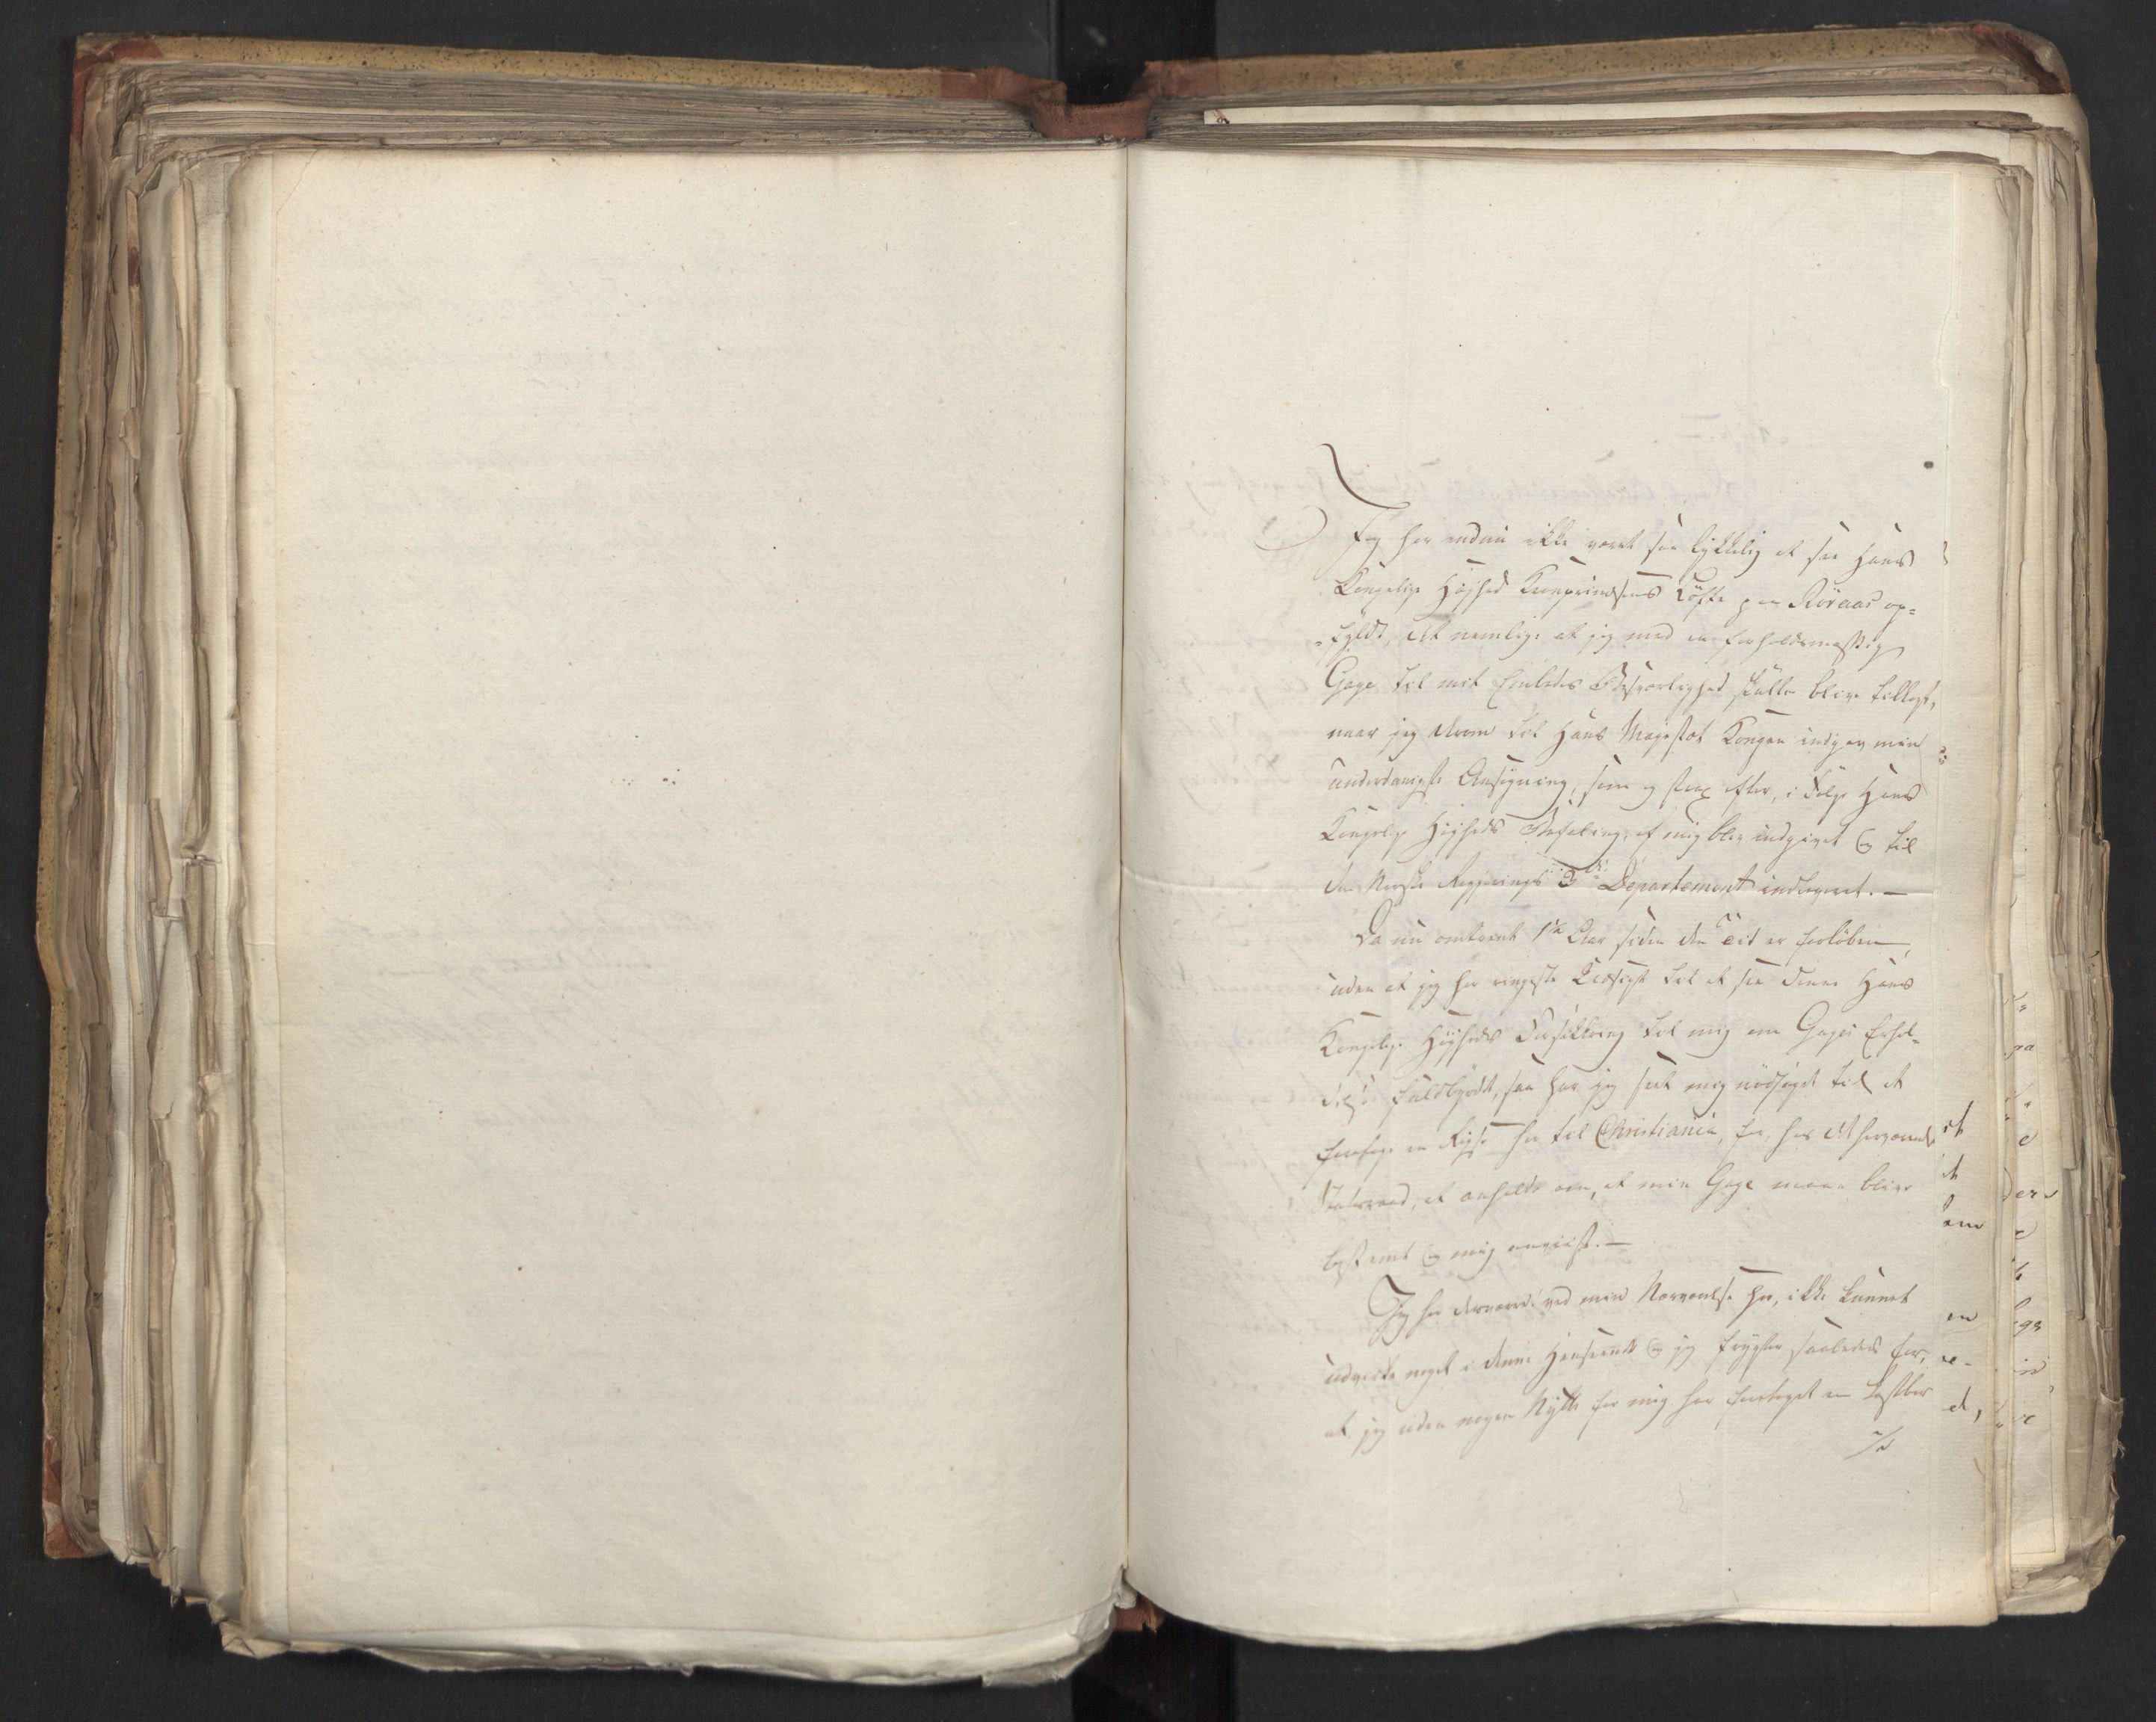 Jeg har endnu ikke været saa lykkelig at see Hans
Kongelige Højhed Kronprindsens Löfte paa Röraas op=
=fyldt, det nemlig: at jeg med en forholdsmæssig
Gage til mit Embedes Besværlighed skulle blive tillagt,
naar jeg derom til Hans Majestæt Kongen indgav min
underdanigste Ansøgning, som og strax efter, i Følge Hans
Kongelig Højheds Befaling, af mig blev indgivet og til
den Norske Regjerings 3die Departement indleveret. —
Da nu omtrent 1½ Aar siden den Tid er forløben,
uden at jeg har ringeste Udsigt til at see denne Hans
Kongelige Højheds Forsikkring til mig om Gages Erhol=
delse fuldbyrdet, saa har jeg seet mig nödsaget til at
foretage en Rejse her til Christiania, for, hos det herværende
Statsraad, at anholde om, at min Gage maae blive
bestemt og mig anviist. —
Jeg har desværre! ved min Nærværelse her, ikke kunnet
udvirke noget i denne Henseende og jeg frygter saaledes for,
at jeg uden nogen Nytte for mig har foretaget en kostbar